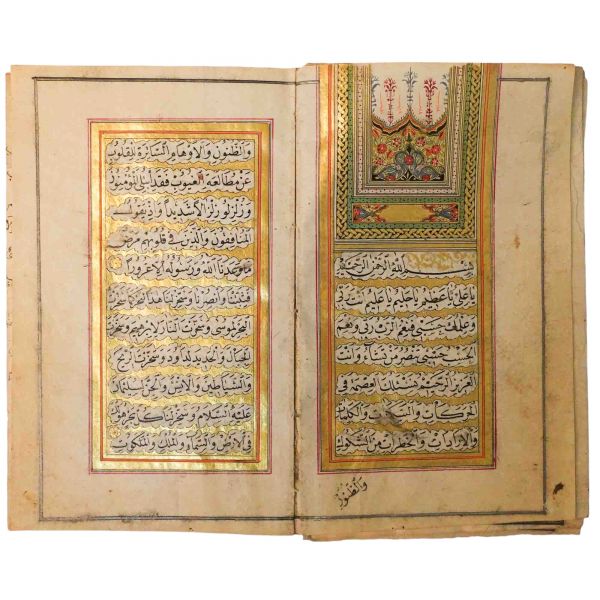 بسم الله الرحمن الرحيم
يا علي يا عظيم يا حليم يا عليم انت ربي
وعلمك حسبي فنعم الرب ربي ونعم
الحسب حسبي تنصر من تشاء وانت
العزيز الرحيم نسئلك العصمة في
الحركات والسكنات والكلمات
والارادات والخطرات من الشكوك
والظنون
والظنون والاوهام الساترة للقلوب
عن مطالعة الغيوب فقد ابتلي المؤمنون
وزلزلوا زلزالا شديدا واذ يقول
المنافقون والذين في قلوبهم مرض
ما وعدنا الله ورسوله الا غرورا
فثبتنا وانصرنا وسخر لنا هذا البحر كما سخرت
البحر لموسى وسخرت النار لابرهيم وسخرت
الجبال والحديد لداود وسخرت الريح
والشياطين والانس والجن لسليمان
عليه السلام وسخر لنا كل بحر هو لك
في الارض والسماء والملك والملكوت